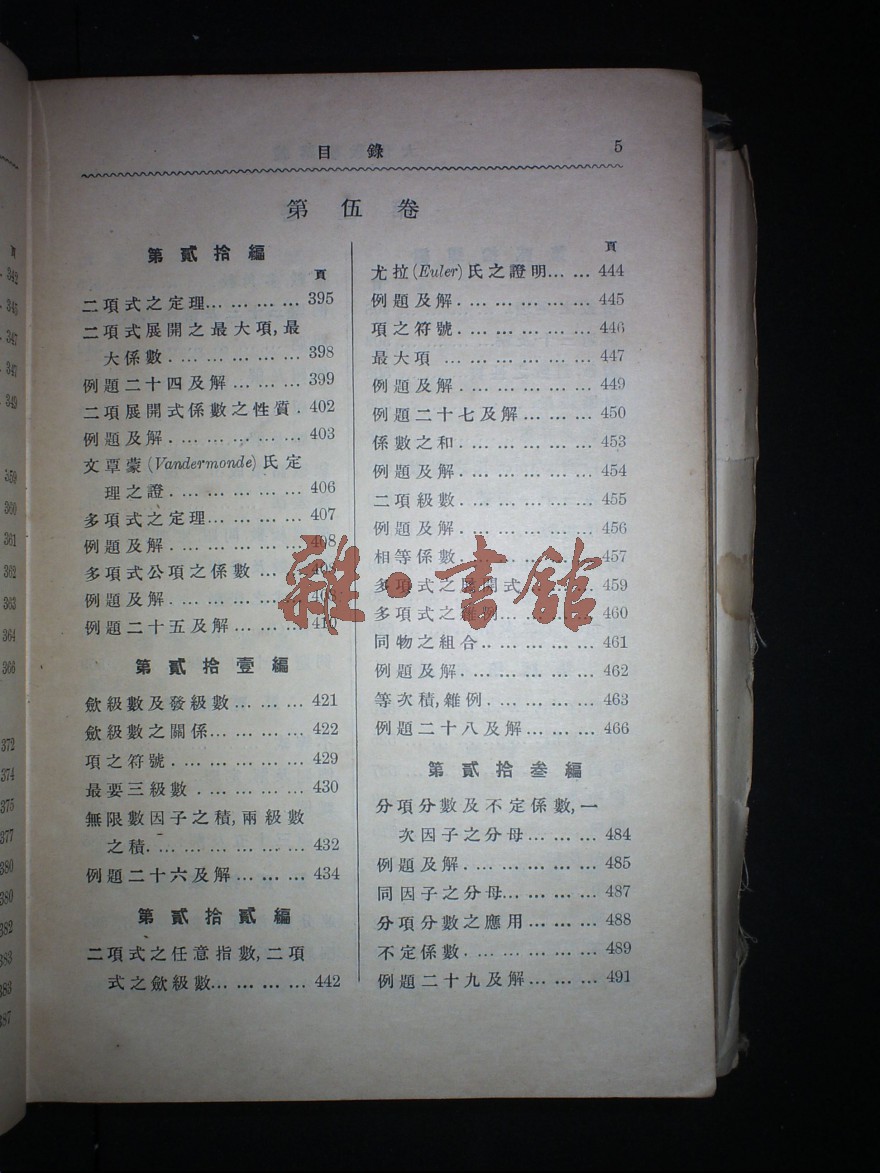 目錄 5
第伍卷
第貳拾編
頁
二項式之定理………… 395
二項式展開之最大項,最
大係數………… 398
例題二十四及解……… 399
二項展開式係數之性質. 402
例題及解………… 403
文覃蒙(Vandermonde)氏定
理之證………… 406
多項式之定理………… 407
例題及解………… 408
多項式公項之係數…
例題及解…………
例題二十五及解……… 410
第貳拾壹編
斂級數及發級數……… 421
斂級數之關係………… 422
項之符號………… 429
最要三級數………… 430
無限數因子之積,兩級數
之積………… 432
例題二十六及解……… 434
第貳拾貳編
二項式之任意指數,二項
式之斂級數………… 442
頁
尤拉(Euler)氏之證明…… 444
例題及解………… 445
項之符號………… 446
最大項………… 447
例題及解………… 449
例題二十七及解……… 450
係數之和………… 453
例題及解………… 454
二項級數………… 455
例題及解………… 456
相等係數………… 457
多項式之展開式…… 459
多項式之雜例……… 460
同物之組合………… 461
例題及解………… 462
等次積,雜例………… 463
例題二十八及解……… 466
第貳拾叁編
分項分數及不定係數,一
次因子之分母……… 484
例題及解………… 485
同因子之分母………… 487
分項分數之應用……… 488
不定係數………… 489
例題二十九及解……… 491
雜·書館
頁
342
345
347
347
349
359
360
361
362
363
364
366
372
374
375
377
380
380
382
383
383
387